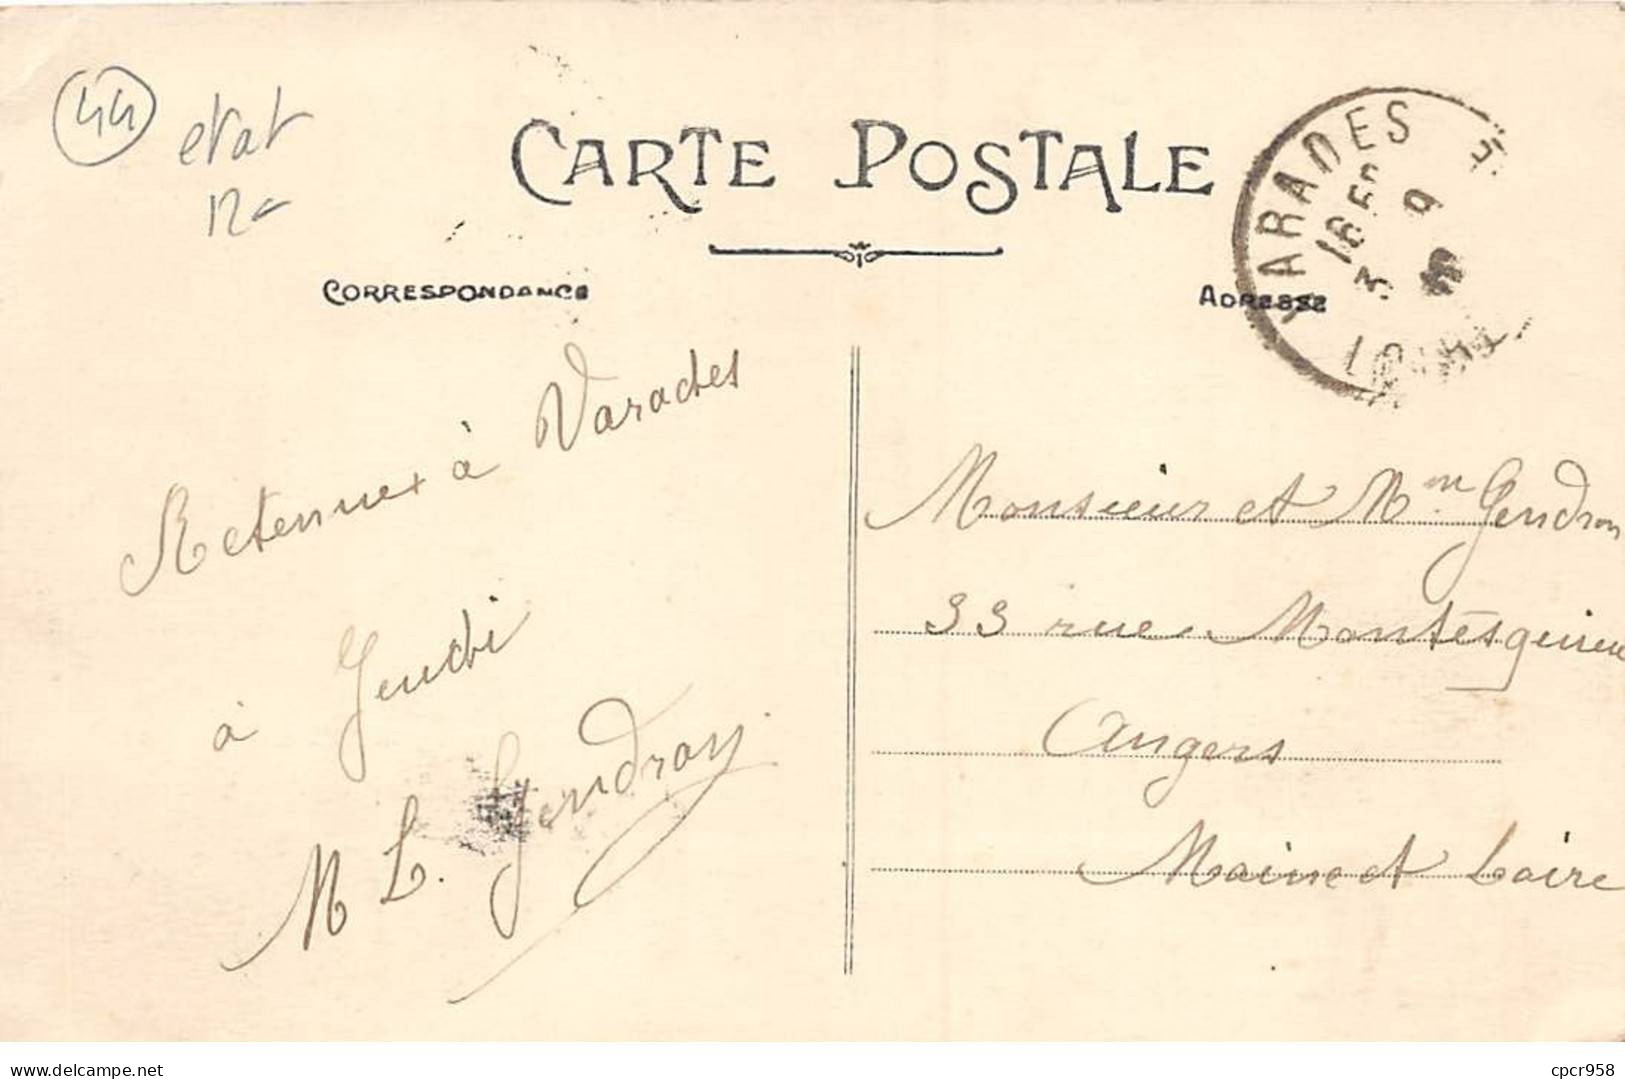 44
etat
12€
CARTE POSTALE
CORRESPONDANCE
ADRESSE
VARADES
16 55
3 9
LOIRE
Retenues à Varades
à Jeudi
M L. Gendron
Monsieur et Mm Gendron
33 rue Montesqeiieu
Angers
Maine et Loire
delcampe.net
cpcr958